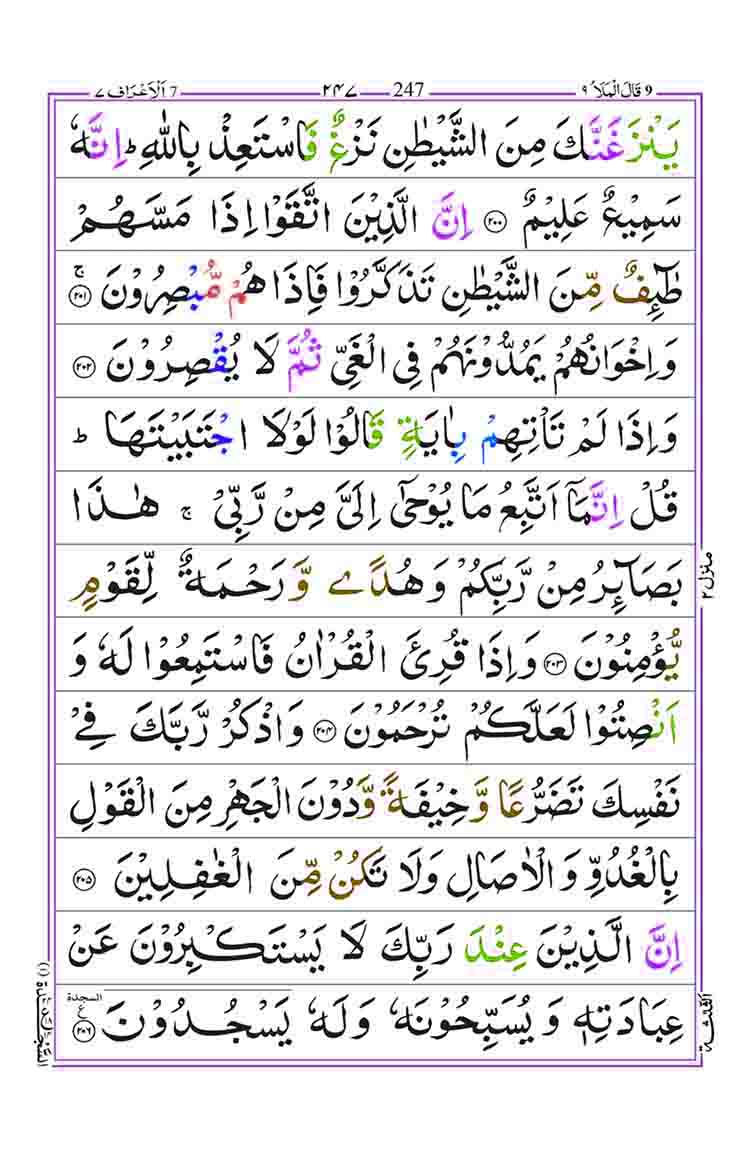 9 قَالَ الْمَلَاُ ٩ 247 ٢٤٧ 7 اَلْاَعْرَاف ٧
يَنْزَغَنَّكَ مِنَ الشَّيْطٰنِ نَزْغٌ فَاسْتَعِذْ بِاللّٰهِ ؕ اِنَّهٗ
سَمِيْعٌ عَلِيْمٌ ۝٢٠٠ اِنَّ الَّذِيْنَ اتَّقَوْا اِذَا مَسَّهُمْ
طٰٓئِفٌ مِّنَ الشَّيْطٰنِ تَذَكَّرُوْا فَاِذَا هُمْ مُّبْصِرُوْنَ ۚ ۝٢٠١
وَاِخْوَانُهُمْ يَمُدُّوْنَهُمْ فِى الْغَىِّ ثُمَّ لَا يُقْصِرُوْنَ ۝٢٠٢
وَاِذَا لَمْ تَاْتِهِمْ بِاٰيَةٍ قَالُوْا لَوْلَا اجْتَبَيْتَهَا ؕ
قُلْ اِنَّمَاۤ اَتَّبِعُ مَا يُوْحٰۤى اِلَىَّ مِنْ رَّبِّىْ ۚ هٰذَا
بَصَآئِرُ مِنْ رَّبِّكُمْ وَهُدًى وَّرَحْمَةٌ لِّقَوْمٍ
يُّؤْمِنُوْنَ ۝٢٠٣ وَاِذَا قُرِئَ الْقُرْاٰنُ فَاسْتَمِعُوْا لَهٗ وَ
اَنْصِتُوْا لَعَلَّكُمْ تُرْحَمُوْنَ ۝٢٠٤ وَاذْكُرْ رَّبَّكَ فِىْ
نَفْسِكَ تَضَرُّعًا وَّخِيْفَةً وَّدُوْنَ الْجَهْرِ مِنَ الْقَوْلِ
بِالْغُدُوِّ وَالْاٰصَالِ وَلَا تَكُنْ مِّنَ الْغٰفِلِيْنَ ۝٢٠٥
اِنَّ الَّذِيْنَ عِنْدَ رَبِّكَ لَا يَسْتَكْبِرُوْنَ عَنْ
عِبَادَتِهٖ وَيُسَبِّحُوْنَهٗ وَلَهٗ يَسْجُدُوْنَ ۝٢٠٦ السجدة ع
منزل ٢
الثلٰثة
السَّجْدَة (١)